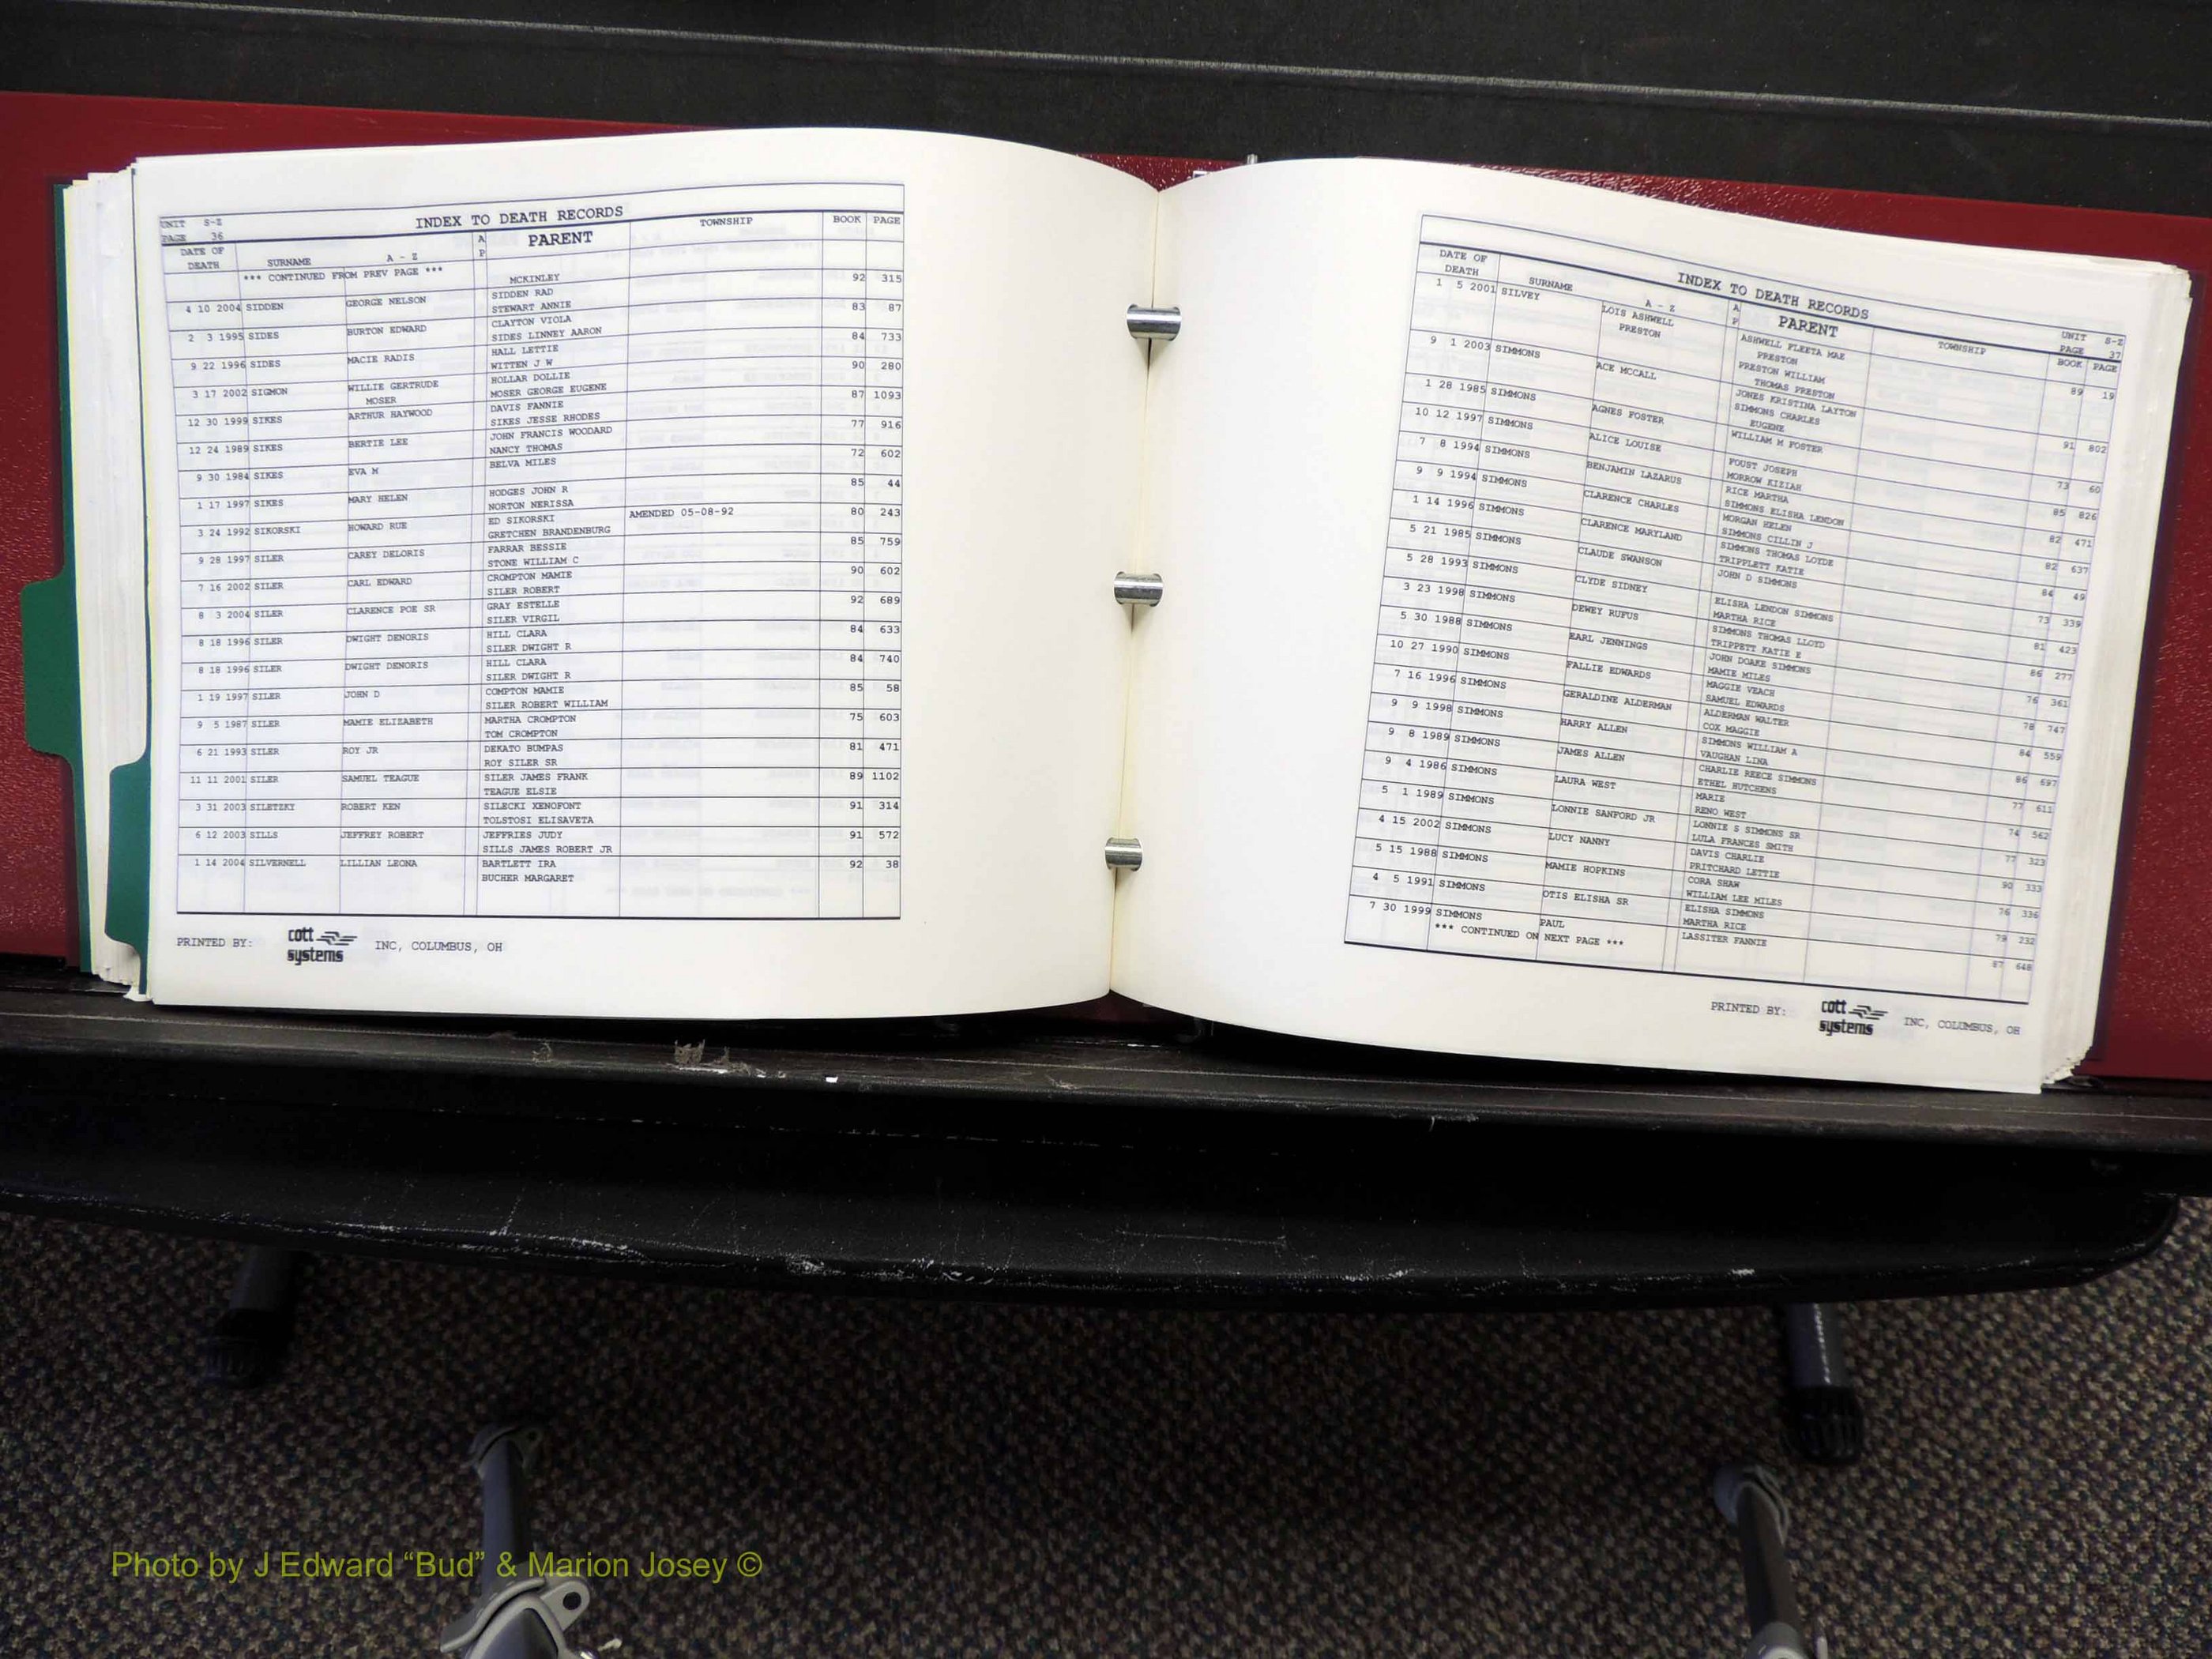 UNIT S-Z
PAGE 36
INDEX TO DEATH RECORDS
DATE OF DEATH SURNAME A - Z A P PARENT TOWNSHIP BOOK PAGE
*** CONTINUED FROM PREV PAGE ***
MCKINLEY
4 10 2004 SIDDEN GEORGE NELSON SIDDEN RAD 92 315
STEWART ANNIE
2 3 1995 SIDES BURTON EDWARD CLAYTON VIOLA 83 87
SIDES LINNEY AARON
9 22 1996 SIDES MACIE RADIS HALL LETTIE 84 733
WITTEN J W
3 17 2002 SIGMON WILLIE GERTRUDE HOLLAR DOLLIE 90 280
MOSER MOSER GEORGE EUGENE
12 30 1999 SIKES ARTHUR HAYWOOD DAVIS FANNIE 87 1093
SIKES JESSE RHODES
12 24 1989 SIKES BERTIE LEE JOHN FRANCIS WOODARD 77 916
NANCY THOMAS
9 30 1984 SIKES EVA M BELVA MILES 72 602
1 17 1997 SIKES MARY HELEN HODGES JOHN R 85 44
NORTON NERISSA
3 24 1992 SIKORSKI HOWARD RUE ED SIKORSKI AMENDED 05-08-92 80 243
GRETCHEN BRANDENBURG
9 28 1997 SILER CAREY DELORIS FARRAR BESSIE 85 759
STONE WILLIAM C
7 16 2002 SILER CARL EDWARD CROMPTON MAMIE 90 602
SILER ROBERT
8 3 2004 SILER CLARENCE POE SR GRAY ESTELLE 92 689
SILER VIRGIL
8 18 1996 SILER DWIGHT DENORIS HILL CLARA 84 633
SILER DWIGHT R
8 18 1996 SILER DWIGHT DENORIS HILL CLARA 84 740
SILER DWIGHT R
1 19 1997 SILER JOHN D COMPTON MAMIE 85 58
SILER ROBERT WILLIAM
9 5 1987 SILER MAMIE ELIZABETH MARTHA CROMPTON 75 603
TOM CROMPTON
6 21 1993 SILER ROY JR DEKATO BUMPAS 81 471
ROY SILER SR
11 11 2001 SILER SAMUEL TEAGUE SILER JAMES FRANK 89 1102
TEAGUE ELSIE
3 31 2003 SILETZKY ROBERT KEN SILECKI XENOFONT 91 314
TOLSTOSI ELISAVETA
6 12 2003 SILLS JEFFREY ROBERT JEFFRIES JUDY 91 572
SILLS JAMES ROBERT JR
1 14 2004 SILVERNELL LILLIAN LEONA BARTLETT IRA 92 38
BUCHER MARGARET
PRINTED BY: cott systems INC, COLUMBUS, OH
INDEX TO DEATH RECORDS
UNIT S-Z
PAGE 37
DATE OF DEATH SURNAME A - Z A P PARENT TOWNSHIP BOOK PAGE
1 5 2001 SILVEY LOIS ASHWELL ASHWELL FLEETA MAE 89 19
PRESTON PRESTON
PRESTON WILLIAM
THOMAS PRESTON
9 1 2003 SIMMONS ACE MCCALL JONES KRISTINA LAYTON 91 802
SIMMONS CHARLES
EUGENE
1 28 1985 SIMMONS AGNES FOSTER WILLIAM M FOSTER 73 60
10 12 1997 SIMMONS ALICE LOUISE FOUST JOSEPH 85 826
MORROW KIZIAH
7 8 1994 SIMMONS BENJAMIN LAZARUS RICE MARTHA 82 471
SIMMONS ELISHA LENDON
9 9 1994 SIMMONS CLARENCE CHARLES MORGAN HELEN 82 637
SIMMONS CILLIN J
1 14 1996 SIMMONS CLARENCE MARYLAND SIMMONS THOMAS LOYDE 84 49
TRIPPLETT KATIE
5 21 1985 SIMMONS CLAUDE SWANSON JOHN D SIMMONS 73 339
5 28 1993 SIMMONS CLYDE SIDNEY ELISHA LENDON SIMMONS 81 423
MARTHA RICE
3 23 1998 SIMMONS DEWEY RUFUS SIMMONS THOMAS LLOYD 86 277
TRIPPETT KATIE E
5 30 1988 SIMMONS EARL JENNINGS JOHN DOAKE SIMMONS 76 361
MAMIE MILES
10 27 1990 SIMMONS FALLIE EDWARDS MAGGIE VEACH 78 747
SAMUEL EDWARDS
7 16 1996 SIMMONS GERALDINE ALDERMAN ALDERMAN WALTER 84 559
COX MAGGIE
9 9 1998 SIMMONS HARRY ALLEN SIMMONS WILLIAM A 86 697
VAUGHAN LINA
9 8 1989 SIMMONS JAMES ALLEN CHARLIE REECE SIMMONS 77 611
ETHEL HUTCHENS
9 4 1986 SIMMONS LAURA WEST MARIE 74 562
RENO WEST
5 1 1989 SIMMONS LONNIE SANFORD JR LONNIE S SIMMONS SR 77 323
LULA FRANCES SMITH
4 15 2002 SIMMONS LUCY NANNY DAVIS CHARLIE 90 333
PRITCHARD LETTIE
5 15 1988 SIMMONS MAMIE HOPKINS CORA SHAW 76 336
WILLIAM LEE MILES
4 5 1991 SIMMONS OTIS ELISHA SR ELISHA SIMMONS 79 232
MARTHA RICE
7 30 1999 SIMMONS PAUL LASSITER FANNIE 87 648
*** CONTINUED ON NEXT PAGE ***
PRINTED BY: cott systems INC, COLUMBUS, OH
Photo by J Edward “Bud” & Marion Josey ©